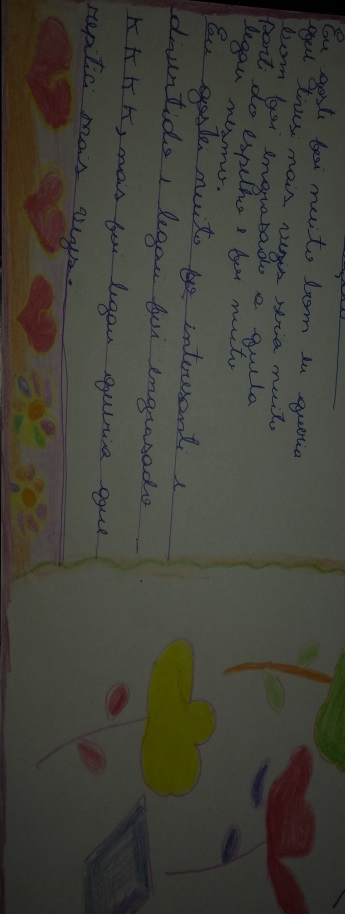 Eu goste foi muito bom eu queria
que tives mais vezes seria muito
bom foi engrasado a quela
part do espelho e foi muito
legau mesmo.
Eu gostei muito foi interesanti e
divertido e legau foi engrasado
KKKK, mais foi legau queria que
reptise mais vezes.